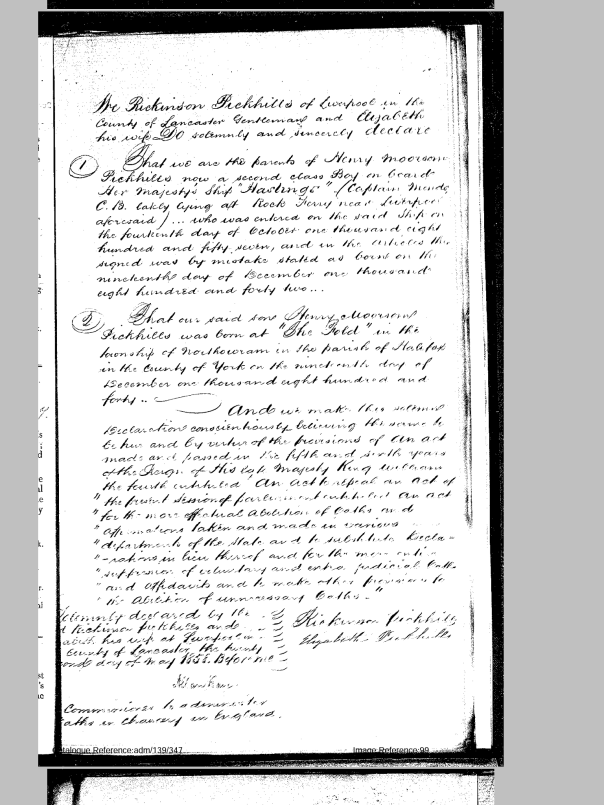 We Rickinson Pickhills of Liverpool in the
County of Lancaster Gentleman and Elizabeth
his wife DO solemnly and sincerely declare
1 That we are the parents of Henry Moorsom
Pickhills now a second class Boy on board
Her Majesty's Ship "Hastings" (Captain Mends
C.B. lately lying at Rock Ferry near Liverpool
aforesaid) ... who was entered on the said Ship on
the fourteenth day of October one thousand eight
hundred and fifty seven, and in the articles then
signed was by mistake stated as born on the
nineteenth day of December one thousand
eight hundred and forty two...
2 That our said son Henry Moorsom
Pickhills was born at "The Fold" in the
township of Northowram in the parish of Halifax
in the County of York on the nineteenth day of
December one thousand eight hundred and
forty ..
And we make this solemn
Declaration conscientiously believing the same to
be true and by virtue of the provisions of an act
made and passed in the fifth and sixth years
of the Reign of His late Majesty King William
the fourth intituled "An act to repeal an act of
" the present session of parliament intituled an act
" for the more effectual abolition of oaths and
" affirmations taken and made in various
" departments of the state and to substitute Decla-
" -rations in lieu thereof and for the more enti-
" suppression of voluntary and extra judicial oaths
" and affidavits and to make other provisions for
" the abolition of unnecessary oaths."
Solemnly declared by the
Rickinson Pickhills and
his wife at Liverpool
County of Lancaster the twenty
day of May 1858. Before me
Rickinson Pickhills
Elizabeth Pickhills
Commissioner to administer
oaths in Chancery in England.
Catalogue Reference:adm/139/347
Image Reference:99